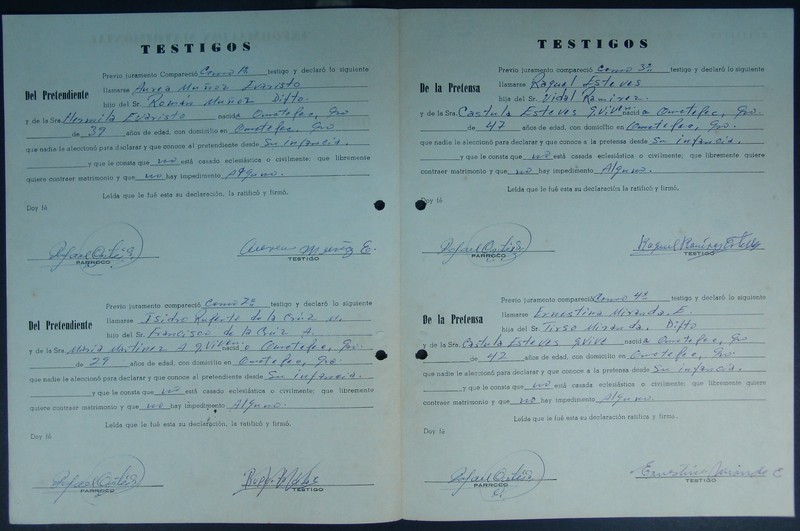 TESTIGOS
Previo juramento compareció Como 1º testigo y declaró lo siguiente
Del Pretendiente
llamarse Aurea Muñoz Evaristo
hijo del Sr. Román Muñoz Difto.
y de la Sra. Hermila Evaristo nacida Ometepec, Gro
de 39 años de edad, con domicilio en Ometepec, Gro
que nadie le aleccionó para declarar y que conoce al pretendiente desde Su infancia.
y que le consta que no está casado eclesiástica o civilmente; que libremente
quiere contraer matrimonio y que no hay impedimento Alguno.
Leída que le fué esta su declaración, la ratificó y firmó.
Doy fé
Rafael Ortiz
PARROCO
Muñoz E.
TESTIGO
Previo juramento compareció Como 2º testigo y declaró lo siguiente
Del Pretendiente
llamarse Isidro Ruperto de la Cruz M.
hijo del Sr. Francisco de la Cruz A.
y de la Sra. María Martínez A q. Vive nacido Ometepec, Gro.
de 29 años de edad, con domicilio en Ometepec, Gro.
que nadie le aleccionó para declarar y que conoce al pretendiente desde Su infancia.
y que le consta que no está casado eclesiástica o civilmente; que libremente
quiere contraer matrimonio y que no hay impedimento Alguno.
Leída que le fué esta su declaración, la ratificó y firmó.
Doy fé
Rafael Ortiz
PARROCO
TESTIGO
TESTIGOS
Previo juramento compareció Como 3º testigo y declaró lo siguiente
De la Pretensa
llamarse Raquel Esteves
hija del Sr. Vidal Ramírez.
y de la Sra. Castula Esteves q. Vive nacida Ometepec, Gro.
de 47 años de edad, con domicilio en Ometepec, Gro.
que nadie le aleccionó para declarar y que conoce a la pretensa desde Su infancia.
y que le consta que no está casada eclesiástica o civilmente; que libremente
quiere contraer matrimonio y que no hay impedimento Alguno.
Leída que le fué esta su declaración la ratificó y firmó.
Doy fé
Rafael Ortiz
PARROCO
Raquel Ramírez Esteves
TESTIGO
Previo juramento compareció Como 4º testigo y declaró lo siguiente
De la Pretensa
llamarse Ernestina Miranda E.
hija del Sr. Tirso Miranda. Difto
y de la Sra. Castula Esteves q. Vive nacida Ometepec, Gro
de 42 años de edad, con domicilio en Ometepec, Gro
que nadie le aleccionó para declarar y que conoce a la pretensa desde Su infancia.
y que le consta que no está casada eclesiástica o civilmente; que libremente quiere
contraer matrimonio y que no hay impedimento Alguno.
Leída que le fué esta su declaración ratifica y firmó.
Doy fé
Rafael Ortiz
PARROCO
Ernestina Miranda E
TESTIGO